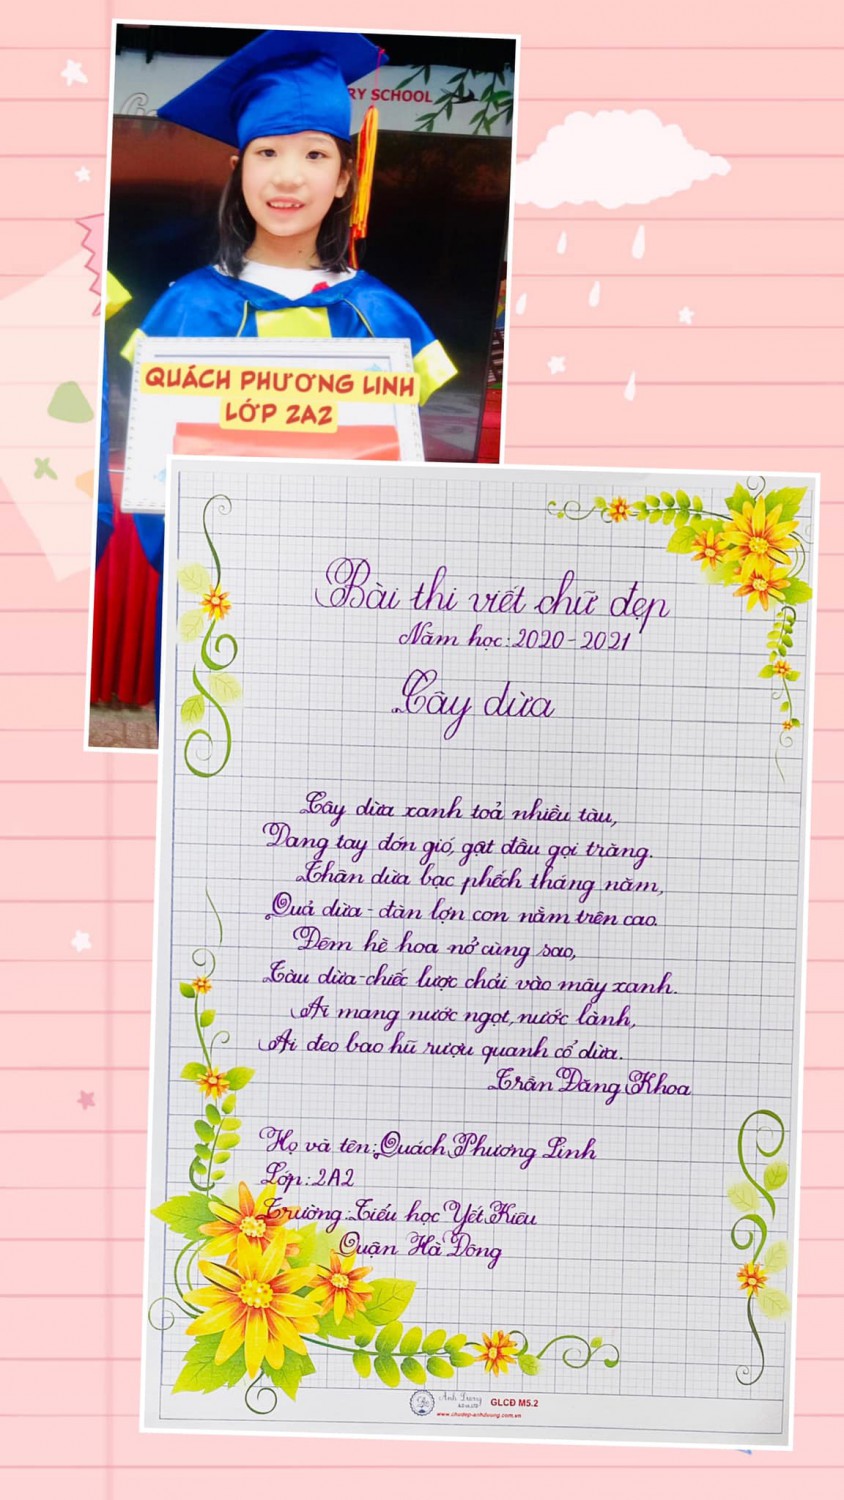 RY SCHOOL
QUÁCH PHƯƠNG LINH
LỚP 2A2
Bài thi viết chữ đẹp
Năm học: 2020-2021
Cây dừa
Cây dừa xanh toả nhiều tàu,
Dang tay đón gió, gật đầu gọi trăng.
Thân dừa bạc phếch tháng năm,
Quả dừa - đàn lợn con nằm trên cao.
Đêm hè hoa nở cùng sao,
Tàu dừa-chiếc lược chải vào mây xanh.
Ai mang nước ngọt, nước lành,
Ai đeo bao hũ rượu quanh cổ dừa.
Trần Đăng Khoa
Họ và tên: Quách Phương Linh
Lớp: 2A2
Trường: Tiểu học Yết Kiêu
Quận Hà Đông
Ánh Dương
GLCĐ M5.2
www.chudep-anhduong.com.vn